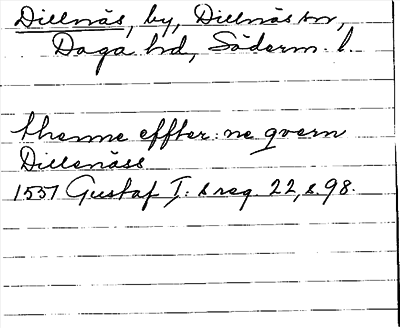 Dillnäs, by, Dillnäs sn,
Daga hd, Söderm. l.
thenne effter:ne qvern
Dillenäss
1551 Gustaf I: s reg. 22, s. 98.